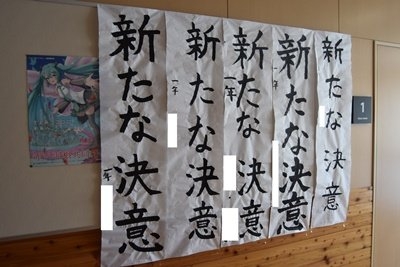 新たな決意
一年
新たな決意
一年
新たな決意
一年
新たな決意
一年
新たな決意
1